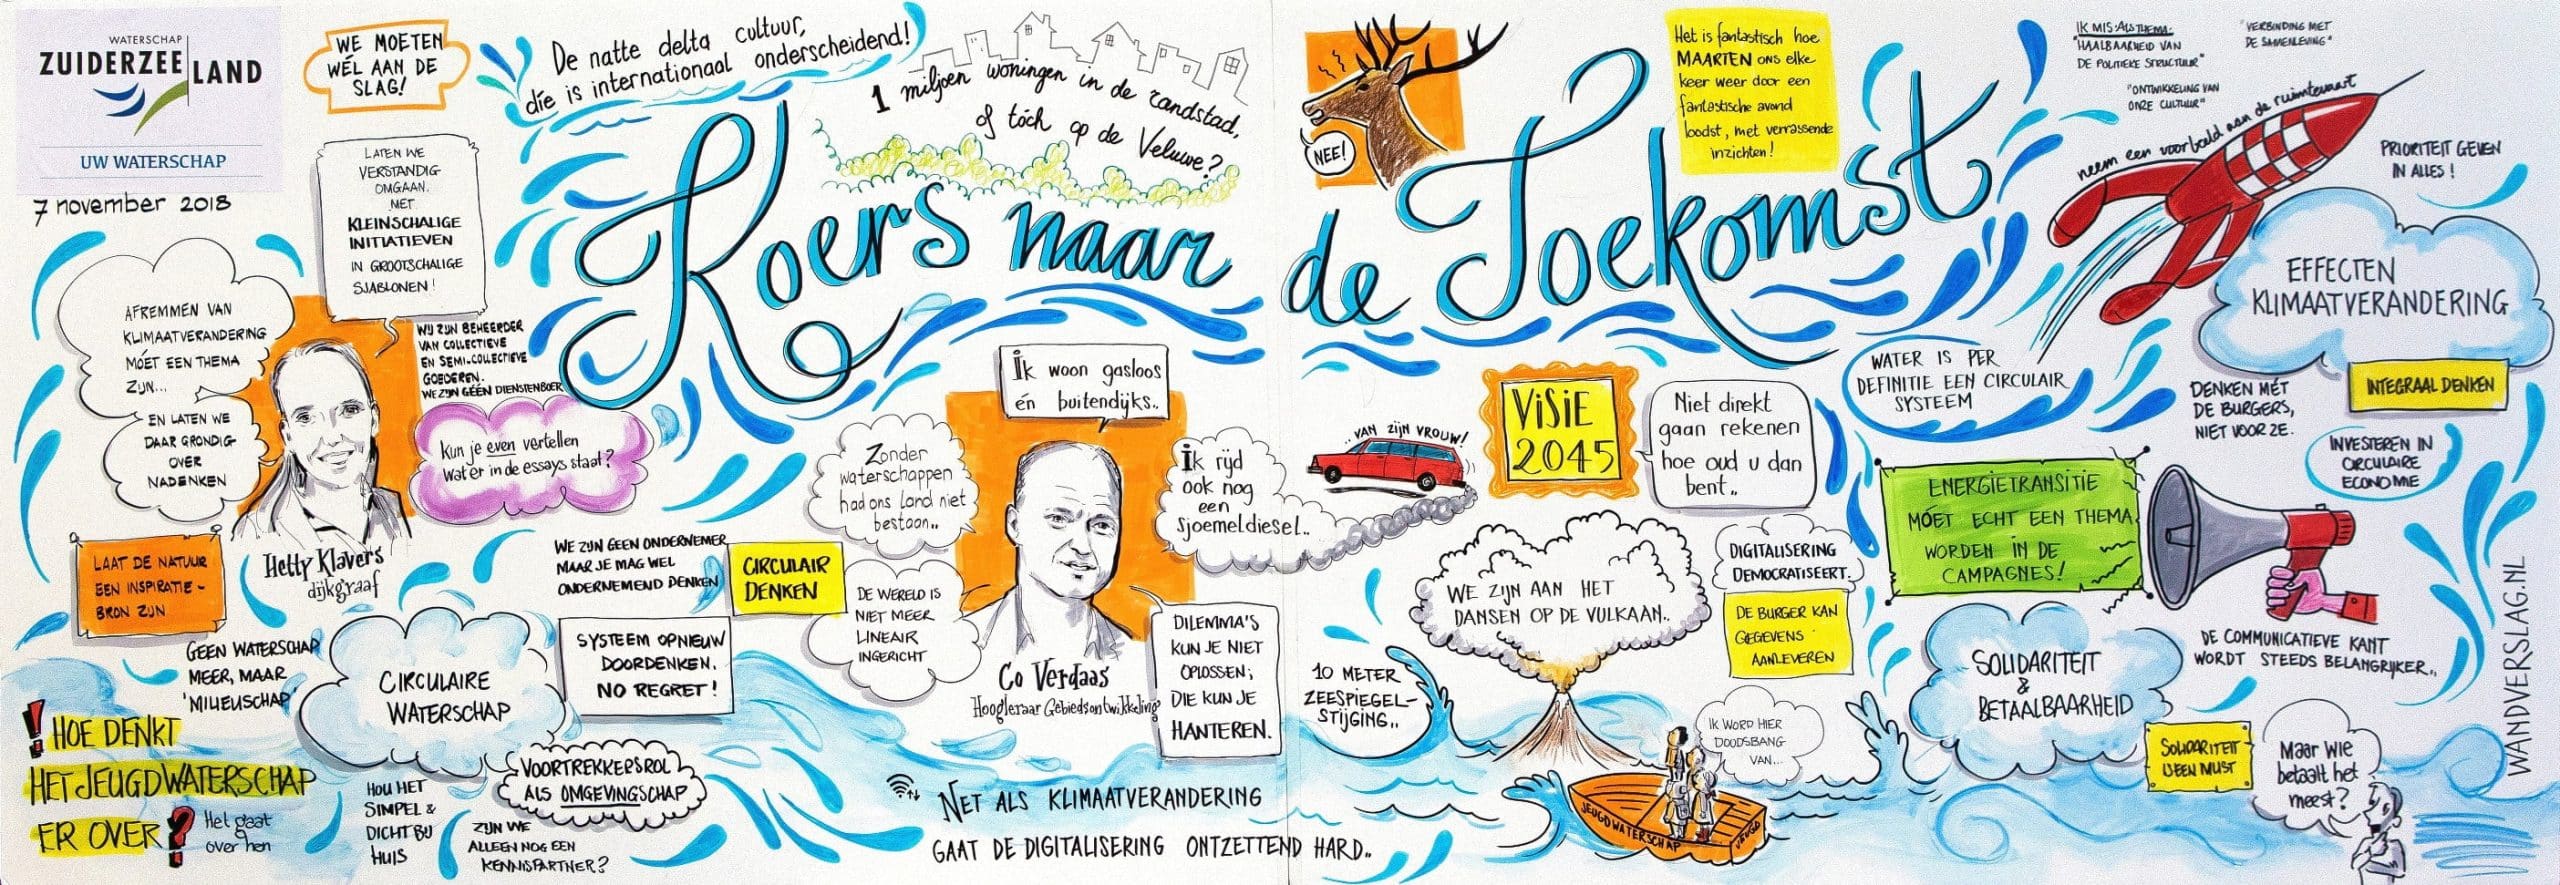 WATERSCHAP
ZUIDERZEELAND
UW WATERSCHAP
7 november 2018
WE MOETEN
WÉL AAN DE
SLAG!
De natte delta cultuur,
die is internationaal onderscheidend!
1 miljoen woningen in de randstad,
of tóch op de Veluwe?
Koers naar
de Toekomst
NEE!
Het is fantastisch hoe
MAARTEN ons elke
keer weer door een
fantastische avond
loodst, met verrassende
inzichten!
IK MIS ALS THEMA:
"HAALBAARHEID VAN
DE POLITIEKE STRUCTUUR"
"VERBINDING MET
DE SAMENLEVING"
"ONTWIKKELING VAN
ONZE CULTUUR"
neem een voorbeeld aan de ruimtevaart
PRIORITEIT GEVEN
IN ALLES!
EFFECTEN
KLIMAATVERANDERING
LATEN WE
VERSTANDIG
OMGAAN.
MET
KLEINSCHALIGE
INITIATIEVEN
IN GROOTSCHALIGE
SJABLONEN!
AFREMMEN VAN
KLIMAATVERANDERING
MÓET EEN THEMA
ZIJN...
EN LATEN WE
DAAR GRONDIG
OVER
NADENKEN
WIJ ZIJN BEHEERDER
VAN COLLECTIEVE
EN SEMI-COLLECTIEVE
GOEDEREN.
WE ZIJN GÉÉN DIENSTENBOER
Kun je even vertellen
water in de essays staat?
Hetty Klavers
dijkgraaf
LAAT DE NATUUR
EEN INSPIRATIE-
BRON ZIJN
GEEN WATERSCHAP
MEER, MAAR
'MILIEUSCHAP'
! HOE DENKT
HET JEUGDWATERSCHAP
ER OVER?
Het gaat
over hen
CIRCULAIRE
WATERSCHAP
HOU HET
SIMPEL &
DICHT BIJ
HUIS
WE ZIJN GEEN ONDERNEMER
MAAR JE MAG WEL
ONDERNEMEND DENKEN
CIRCULAIR
DENKEN
SYSTEEM OPNIEUW
DOORDENKEN.
NO REGRET!
VOORTREKKERSROL
ALS OMGEVINGSCHAP
ZIJN WE
ALLEEN NOG EEN
KENNISPARTNER?
Ik woon gasloos
én buitendijks..
Zonder
waterschappen
had ons land niet
bestaan..
DE WERELD IS
NIET MEER
LINEAIR
INGERICHT
Co Verdaas
Hoogleraar Gebiedsontwikkeling
Ik rijd
ook nog
een
sjoemeldiesel..
..VAN ZIJN VROUW!
DILEMMA'S
KUN JE NIET
OPLOSSEN;
DIE KUN JE
HANTEREN.
NET ALS KLIMAATVERANDERING
GAAT DE DIGITALISERING ONTZETTEND HARD..
VISIE
2045
Niet direkt
gaan rekenen
hoe oud u dan
bent..
WE ZIJN AAN HET
DANSEN OP DE VULKAAN..
10 METER
ZEESPIEGEL-
STIJGING..
DIGITALISERING
DEMOCRATISEERT.
DE BURGER KAN
GEGEVENS
AANLEVEREN
IK WORD HIER
DOODSBANG
VAN...
JEUGDWATERSCHAP
JEUGD
WATER IS PER
DEFINITIE EEN CIRCULAIR
SYSTEEM
DENKEN MÉT
DE BURGERS,
NIET VOOR ZE.
INTEGRAAL DENKEN
INVESTEREN IN
CIRCULAIRE
ECONOMIE
ENERGIETRANSITIE
MÓET ECHT EEN THEMA
WORDEN IN DE
CAMPAGNES!
DE COMMUNICATIEVE KANT
WORDT STEEDS BELANGRIJKER..
SOLIDARITEIT
&
BETAALBAARHEID
SOLIDARITEIT
IS EEN MUST
Maar wie
betaalt het
meest?
WANDVERSLAG.NL